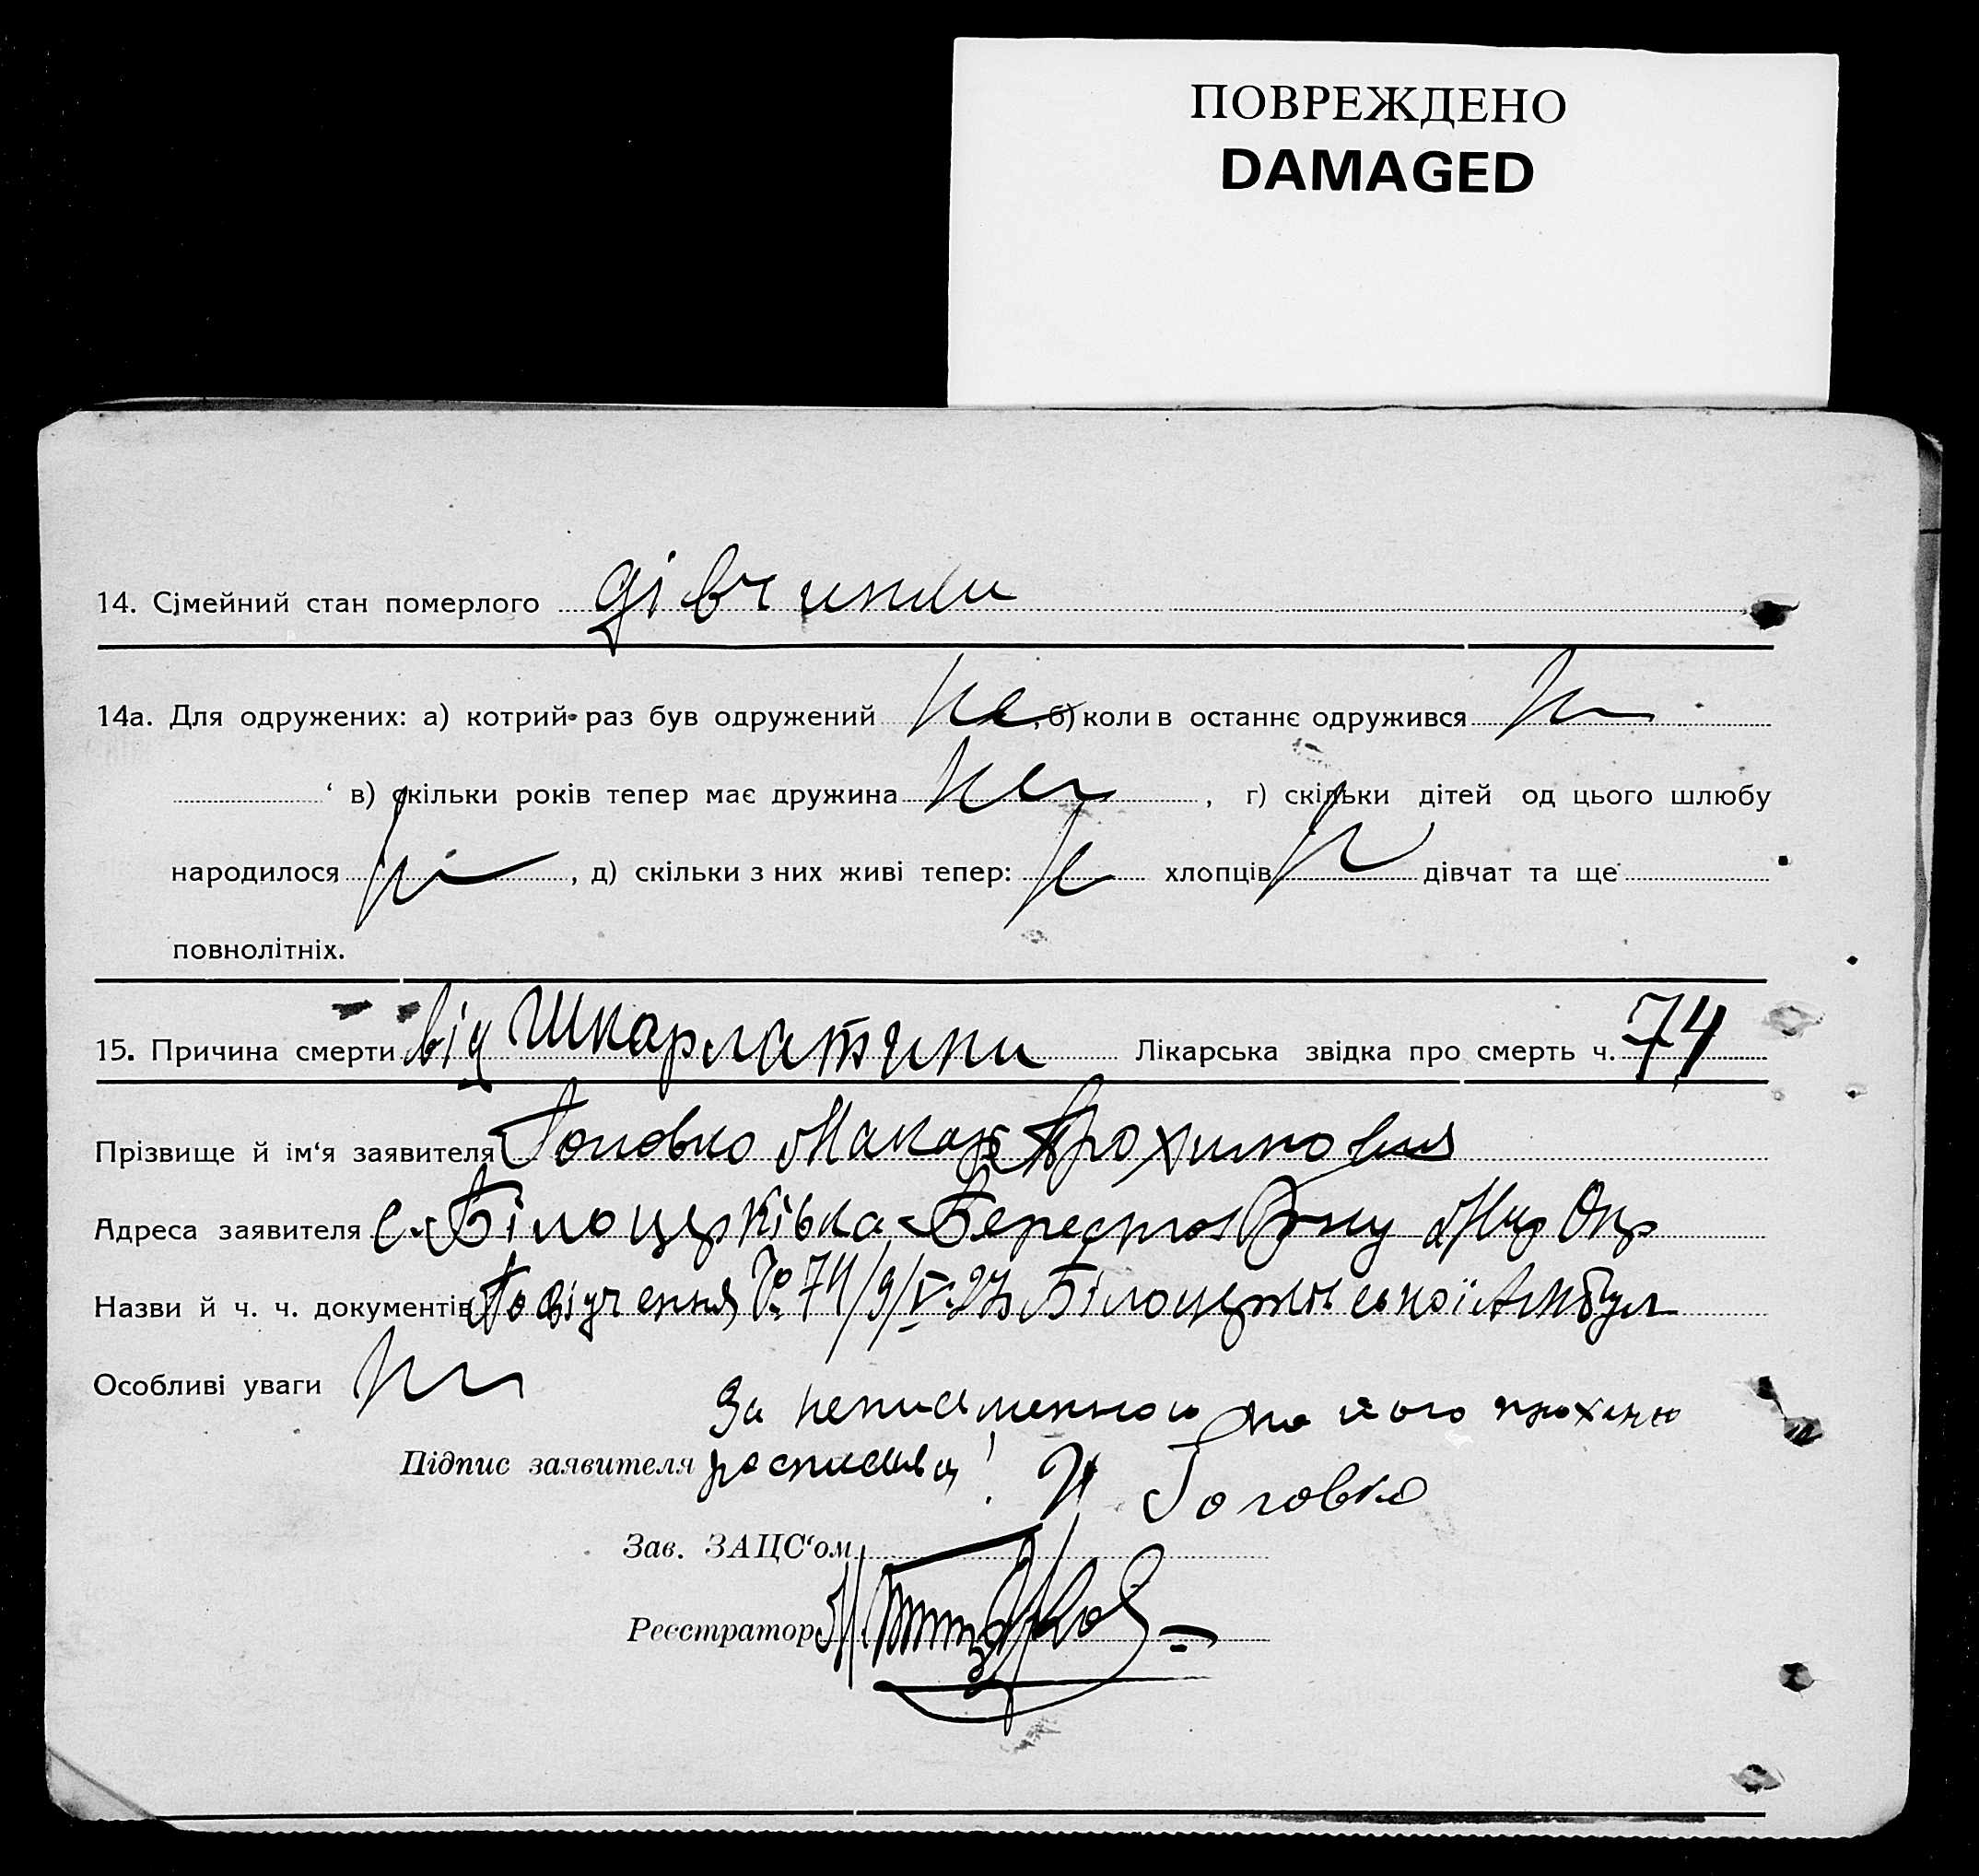 ПОВРЕЖДЕНО
DAMAGED
14. Сімейний стан померлого дівчина
14а. Для одружених: а) котрий раз був одружений не, б) коли в останнє одружився н
в) скільки років тепер має дружина не, г) скільки дітей од цього шлюбу
народилося н, д) скільки з них живі тепер: н хлопців н дівчат та ще
повнолітніх.
15. Причина смерти від Шкарлатини Лікарська звідка про смерть ч. 74
Прізвище й ім‘я заявителя Головко Макар Трохимович
Адреса заявителя с. Білоцерківка Берестов Р-ну Мар Окр
Назви й ч. ч. документів Посвідчення № 74/9/V-27 Білоцерківської Амбул
Особливі уваги
За неписьменного та його проханю
Підпис заявителя росписався Головко
Зав. ЗАЦС‘ом
Реєстратор